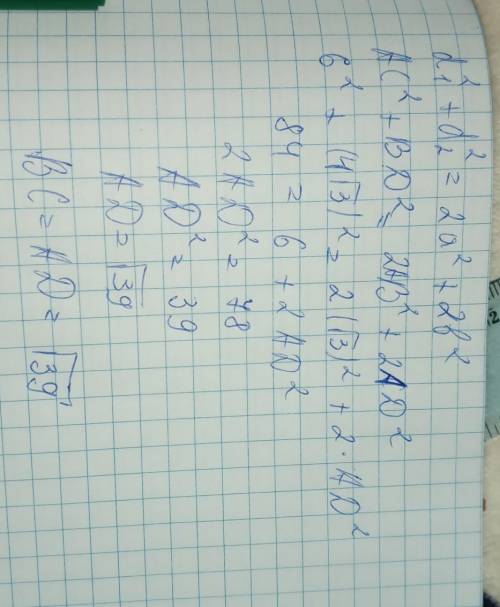 d₁² + d₂² = 2a² + 2b²
AC² + BD² = 2AB² + 2AD²
6² + (4√3)² = 2(√3)² + 2·AD²
84 = 6 + 2AD²
2AD² = 78
AD² = 39
AD = √39
BC = AD = √39